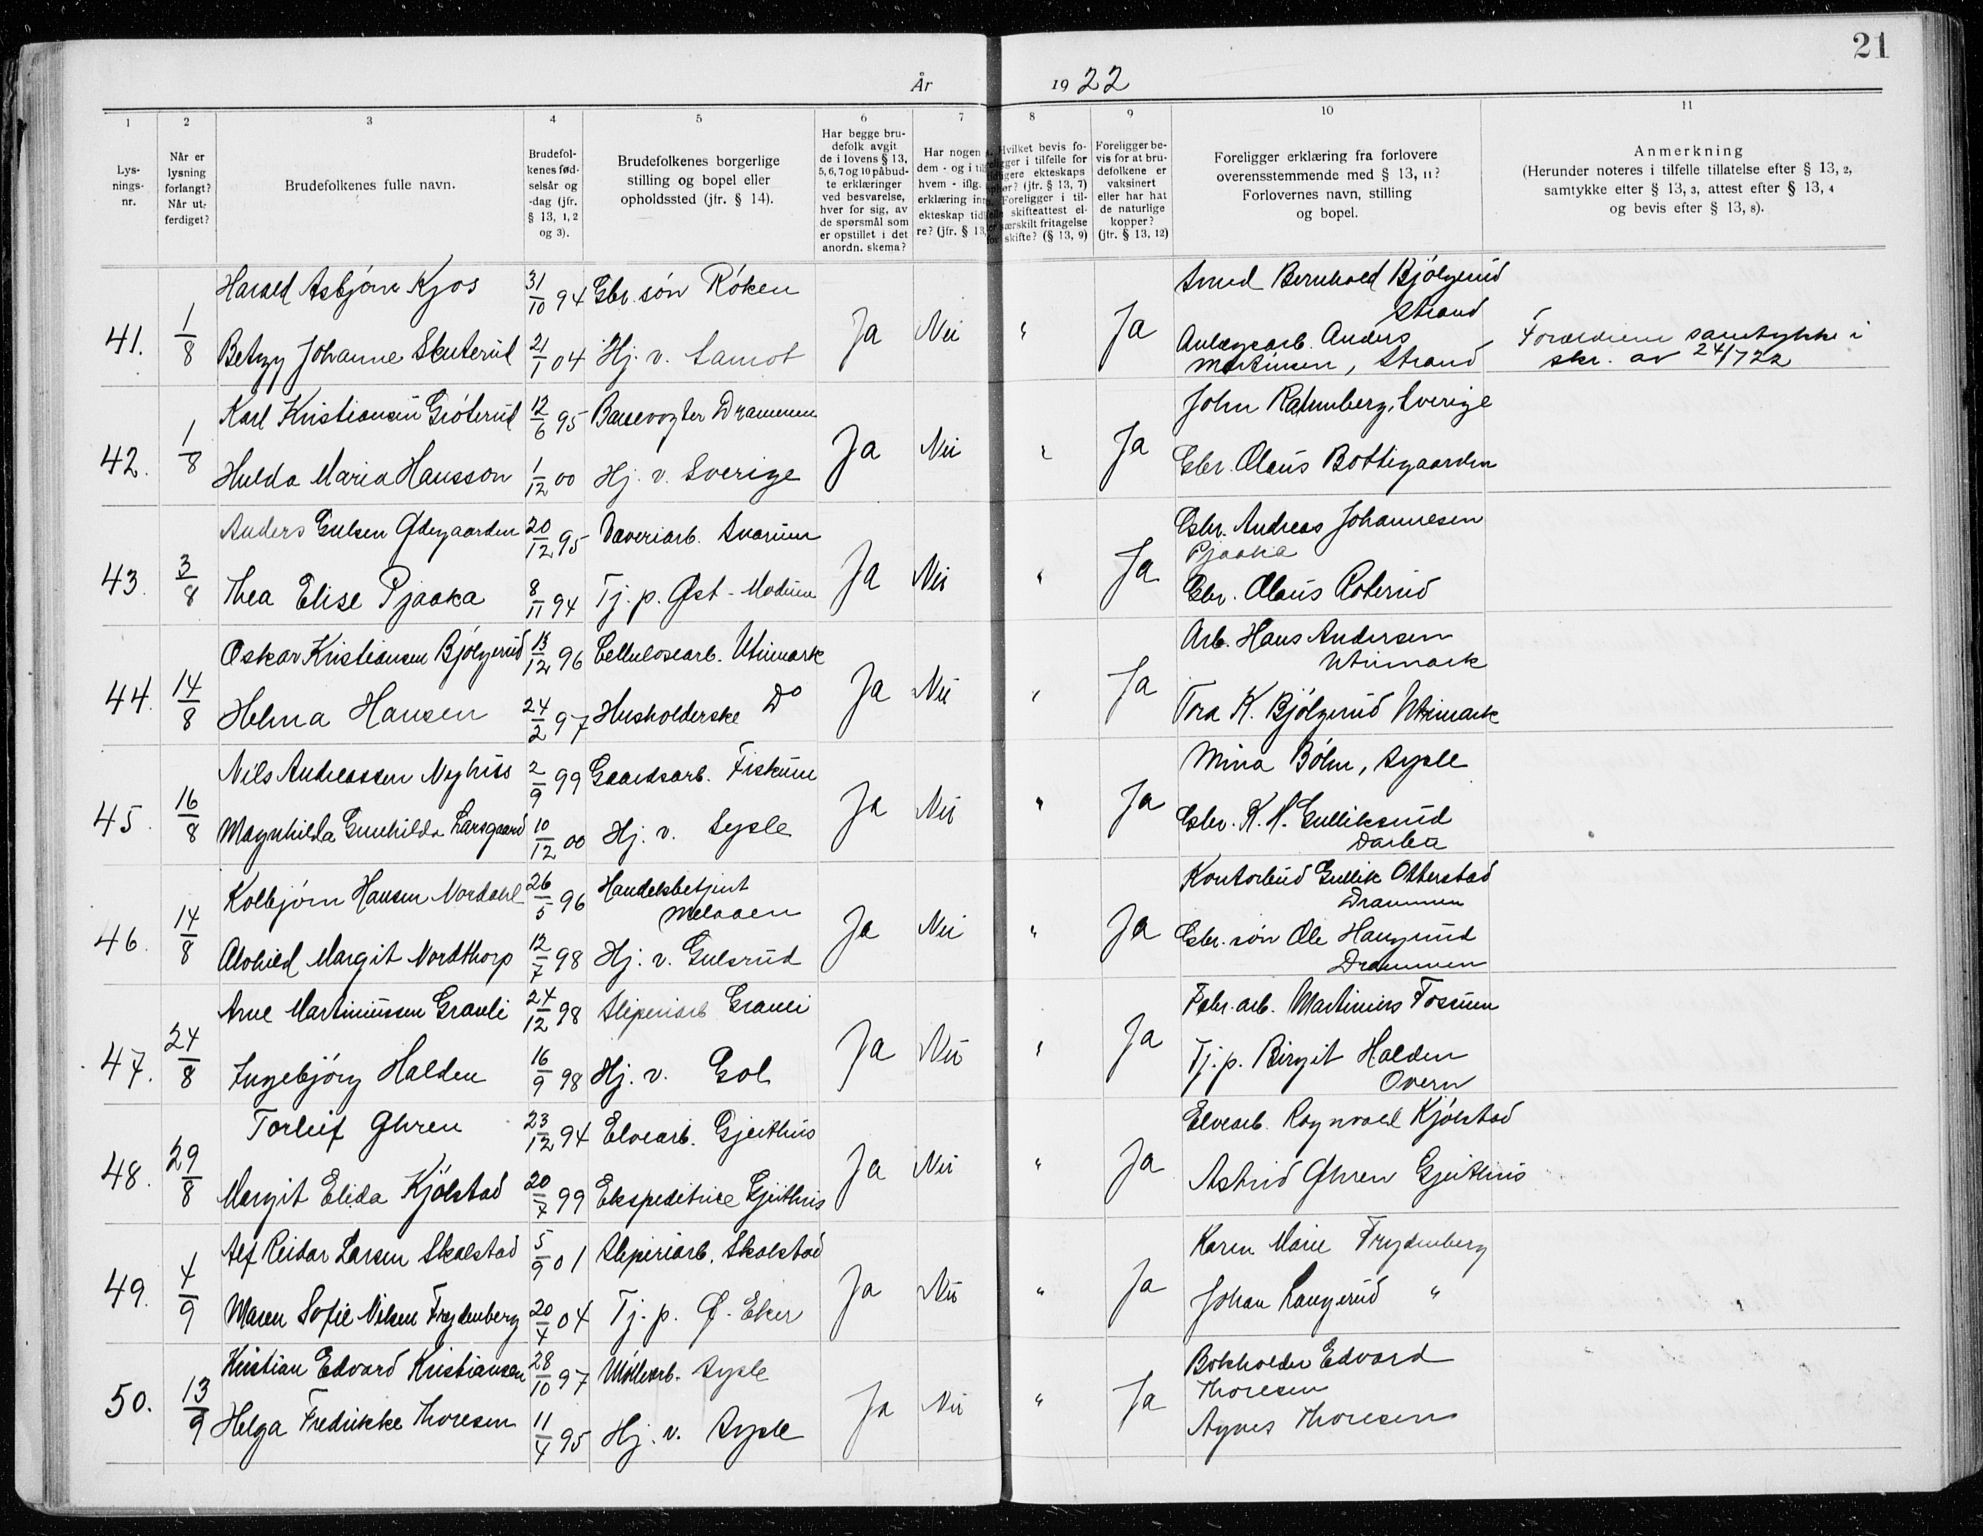 21
År 1922
1 2 3 4 5 6 7 8 9 10 11
Lysnings-nr.
Når er lysning forlangt? Når utferdiget?
Brudefolkenes fulle navn.
Brudefolkenes fødselsår og -dag (jfr. § 13, 1, 2 og 3).
Brudefolkenes borgerlige stilling og bopel eller opholdssted (jfr. § 14).
Har begge brudefolk avgit de i lovens § 13, 5, 6, 7 og 10 påbudte erklæringer ved besvarelse, hver for sig, av de spørsmål som er opstillet i det anordn. skema?
Har nogen
dem - og i
hvem - iflg.
erklæring
ekteskap
re? (jfr. § 13
Hvilket bevis fo-
i tilfelle for
ekteskaps
(jfr. § 13, 7)
Foreligger i til-
skifteattest el-
særskilt fritagelse
for skifte? (§ 13, 9)
Foreligger bevis for at brudefolkene er vaksinert eller har hat de naturlige kopper? (jfr. § 13, 12)
Foreligger erklæring fra forlovere overensstemmende med § 13, 11? Forlovernes navn, stilling og bopel.
Anmerkning
(Herunder noteres i tilfelle tillatelse efter § 13, 2, samtykke efter § 13, 3, attest efter § 13, 4 og bevis efter § 13, 8).
41. 1/8 Harald Asbjørn Kjos 31/10 94 Gbr. søn Røken
Betzy Johanne Skuterud 21/1 04 Hj. v. Samot
Ja Nei " Ja
Smed Bernhold Bjølgerud
Strand
Anlægsarb. Anders
Martinsen, Strand
Forældrene samtykke i
skr. av 24/7 22
42. 1/8 Karl Kristiansen Grøterud 12/6 95 Banevogter Drammen
Hulda Maria Hansson 1/12 00 Hj. v. Sverige
Ja Nei " Ja
John Ratumberg, Sverige
Gbr. Olaus Bottegaarden
43. 3/8 Anders Gulsen Ødegaarden 20/12 95 Væveriarb. Snarum
Thea Elise Pjaaka 8/11 94 Tj. p. Øst-Modum
Ja Nei " Ja
Gbr. Andreas Johannesen
Pjaaka
Gbr. Olaus Roterud
44. 14/8 Oskar Kristiansen Bjølgerud 13/12 96 Cellulosearb. Utimark
Helma Hansen 24/2 97 Husholderske Do
Ja Nei " Ja
Arb. Hans Andersen
Utimark
Tora K. Bjølgerud Utimark
45. 16/8 Nils Andreassen Nyhus 2/9 99 Gaardsarb. Fiskum
Magnhilda Gunhilda Larsgaard 10/12 00 Hj. v. Sysle
Ja Nei " Ja
Mina Bøhn, Sysle
Gbr. K. H. Gulliksrud
Darbu
46. 14/8 Kolbjørn Hansen Nordahl 26/5 96 Handelsbetjent
Melaaen
Alvhild Margit Nordthorp 12/7 98 Hj. v. Gulsrud
Ja Nei " Ja
Kontorbud Gullik Otterstad
Drammen
Gbr. søn Ole Haugerud
Drammen
47. 24/8 Arne Martiniussen Gravli 24/12 98 Sliperiarb Gravli
Ingebjørg Halden 16/9 98 Hj. v. Gol
Ja Nei " Ja
Fabr. arb. Martinius Fossum
Tj. p. Birgit Halden
Overn
48. 29/8 Torleif Øhren 23/12 94 Elvearb. Gjeithus
Margit Elida Kjølstad 20/7 99 Ekspeditrice Gjeithus
Ja Nei " Ja
Elvearb. Ragnvald Kjølstad
Astrid Øhren Gjeithus
49. 4/9 Alf Reidar Larsen Skalstad 5/9 01 Sliperiarb. Skalstad
Maren Sofie Nilsen Frydenberg 20/4 04 Tj. p. Ø. Eker
Ja Nei " Ja
Karen Marie Frydenberg
Johan Langerud "
50. 13/9 Kristian Edvard Kristiansen 28/10 97 Møllearb. Sysle
Helga Fredrikke Thoresen 11/4 95 Hj. v. Sysle
Ja Nei " Ja
Bokholder Edvard
Thoresen
Agnes Thoresen